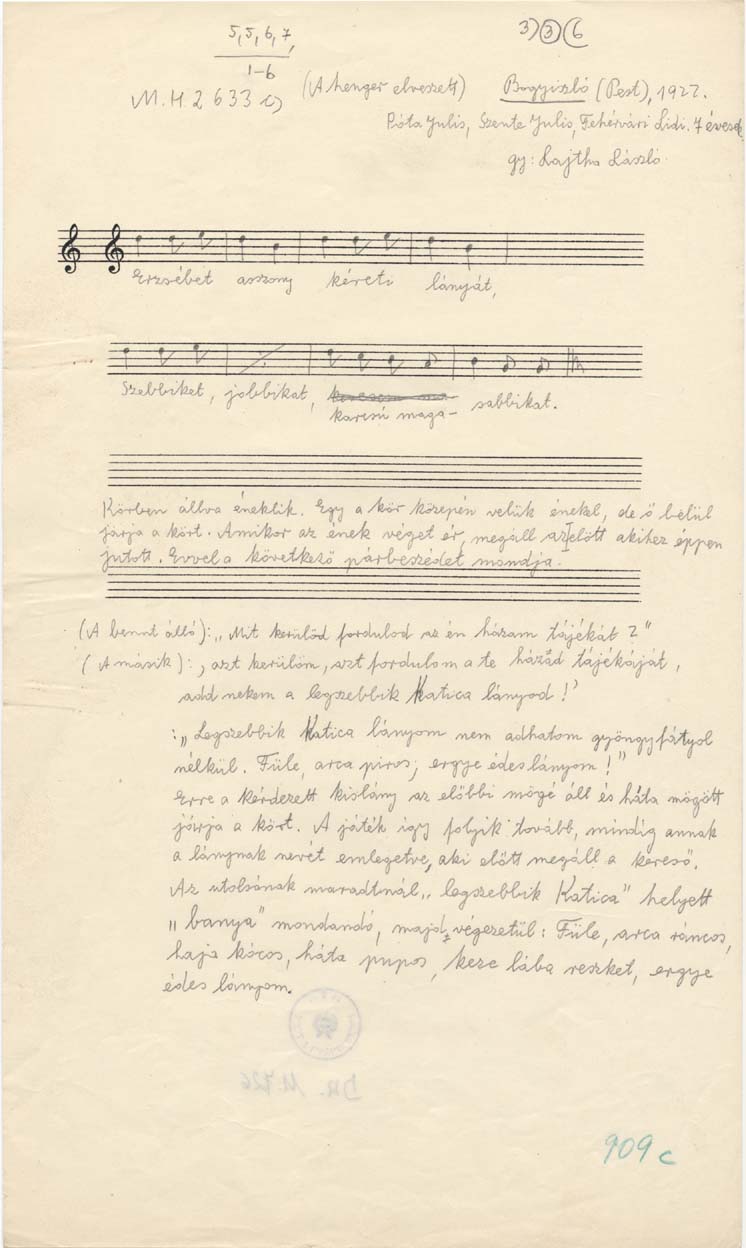 5, 5, 6, 7,
1-6
3) ③ (6
M.H. 2633 c)
(A henger elveszett)
Bogyiszló (Pest), 1922.
Póta Julis, Szente Julis, Fehérvári Lidi. 7 évesek
gy: Lajtha László
Erzsébet asszony kéreti lányát,
Szebbiket, jobbikat,
karcsú maga- sabbikat.
Körben állva éneklik. Egy a kör közepén velük énekel, de ő belül
járja a kört. Amikor az ének véget ér, megáll az előtt akihez éppen
jutott. Evvel a következő párbeszédet mondja.
(A bennt álló): „Mit kerülöd fordulod az én házam tájékát?"
(A másik): „azt kerülöm, azt fordulom a te házad tájékáját,
add nekem a legszebbik Katica lányod!"
: „Legszebbik Katica lányom nem adhatom gyöngyfátyol
nélkül. Füle, arca piros; ergye édes lányom!"
Erre a kérdezett kislány az előbbi mögé áll és háta mögött
járja a kört. A játék így folyik tovább, mindig annak
a lánynak nevét emlegetve, aki előtt megáll a kereső.
Az utolsónak maradtnál „legszebbik Katica" helyett
„banya" mondandó, majd végezetül: Füle, arca ráncos,
haja kócos, háta pupos, keze lába reszket, ergye
édes lányom.
909 c